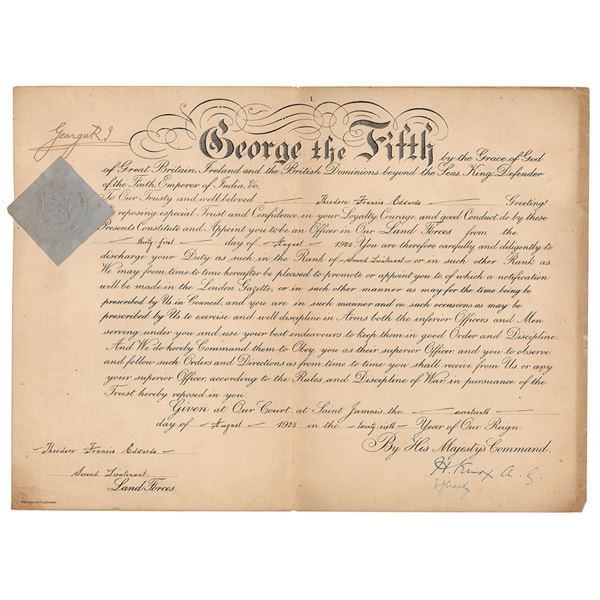 1.
George R. I.
George the Fifth by the Grace of God
of Great Britain, Ireland and the British Dominions beyond the Seas, King, Defender
of the Faith, Emperor of India, &c.
To Our Trusty and well beloved Theodore Francis Edwards Greeting!
reposing especial Trust and Confidence in your Loyalty, Courage, and good Conduct, do by these
Presents Constitute and Appoint you to be an Officer in Our Land Forces from the
thirty first day of August 1935. You are therefore carefully and diligently to
discharge your Duty as such in the Rank of Second Lieutenant or in such other Rank as
We may from time to time hereafter be pleased to promote or appoint you to, of which a notification
will be made in the London Gazette, or in such other manner as may for the time being be
prescribed by Us in Council, and you are in such manner and on such occasions as may be
prescribed by Us to exercise and well discipline in Arms both the inferior Officers and Men
serving under you and use your best endeavours to keep them in good Order and Discipline.
And We do hereby Command them to Obey you as their superior Officer, and you to observe
and follow such Orders and Directions as from time to time you shall receive from Us, or any
your superior Officer, according to the Rules and Discipline of War, in pursuance of the
Trust hereby reposed in you.
Given at Our Court, at Saint James's, the
day of August 1935 in the twenty sixth Year of Our Reign
By His Majesty's Command.
Theodore Francis Edwards
Second Lieutenant
Land Forces.
H. Knox A. G.